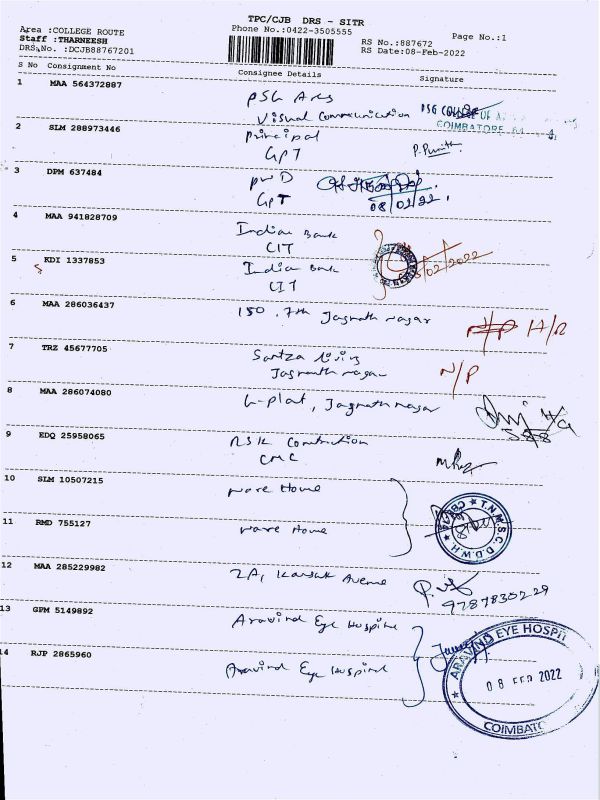 TPC/CJB DRS - SITR
Area :COLLEGE ROUTE
Phone No.:0422-3505555
Page No.:1
Staff :THARNEESH
RS No.:887672
DRS No. :DCJB88767201
RS Date:08-Feb-2022
S No Consignment No Consignee Details Signature
1 MAA 564372887 PSG Arts
Visual Communication PSG COLLEGE OF
COIMBATORE
2 SLM 288973446 Principal
GPT
3 DPM 637484 PWD
GPT 08/02/22.
4 MAA 941828709 Indian Bank
CIT
5 KDI 1337853 Indian Bank
CIT /02/2022
6 MAA 286036437 180, 7th Jagnath nagar H/R
7 TRZ 45677705 living
Jagnath nagar N/P
8 MAA 286074080 Jagnath nagar
9 EDQ 25958065 RSK Contruction
CMC
10 SLM 10507215 ware Home
T.N.M.S.C.D.D.W.H.
11 RMD 755127 ware Home
12 MAA 285229982 2A, Avenue
9787830229
13 GPM 5149892 Aravind Eye Hospital
ARAVIND EYE HOSPIT
14 RJP 2865960 Aravind Eye Hospital
08 FEB 2022
COIMBATO